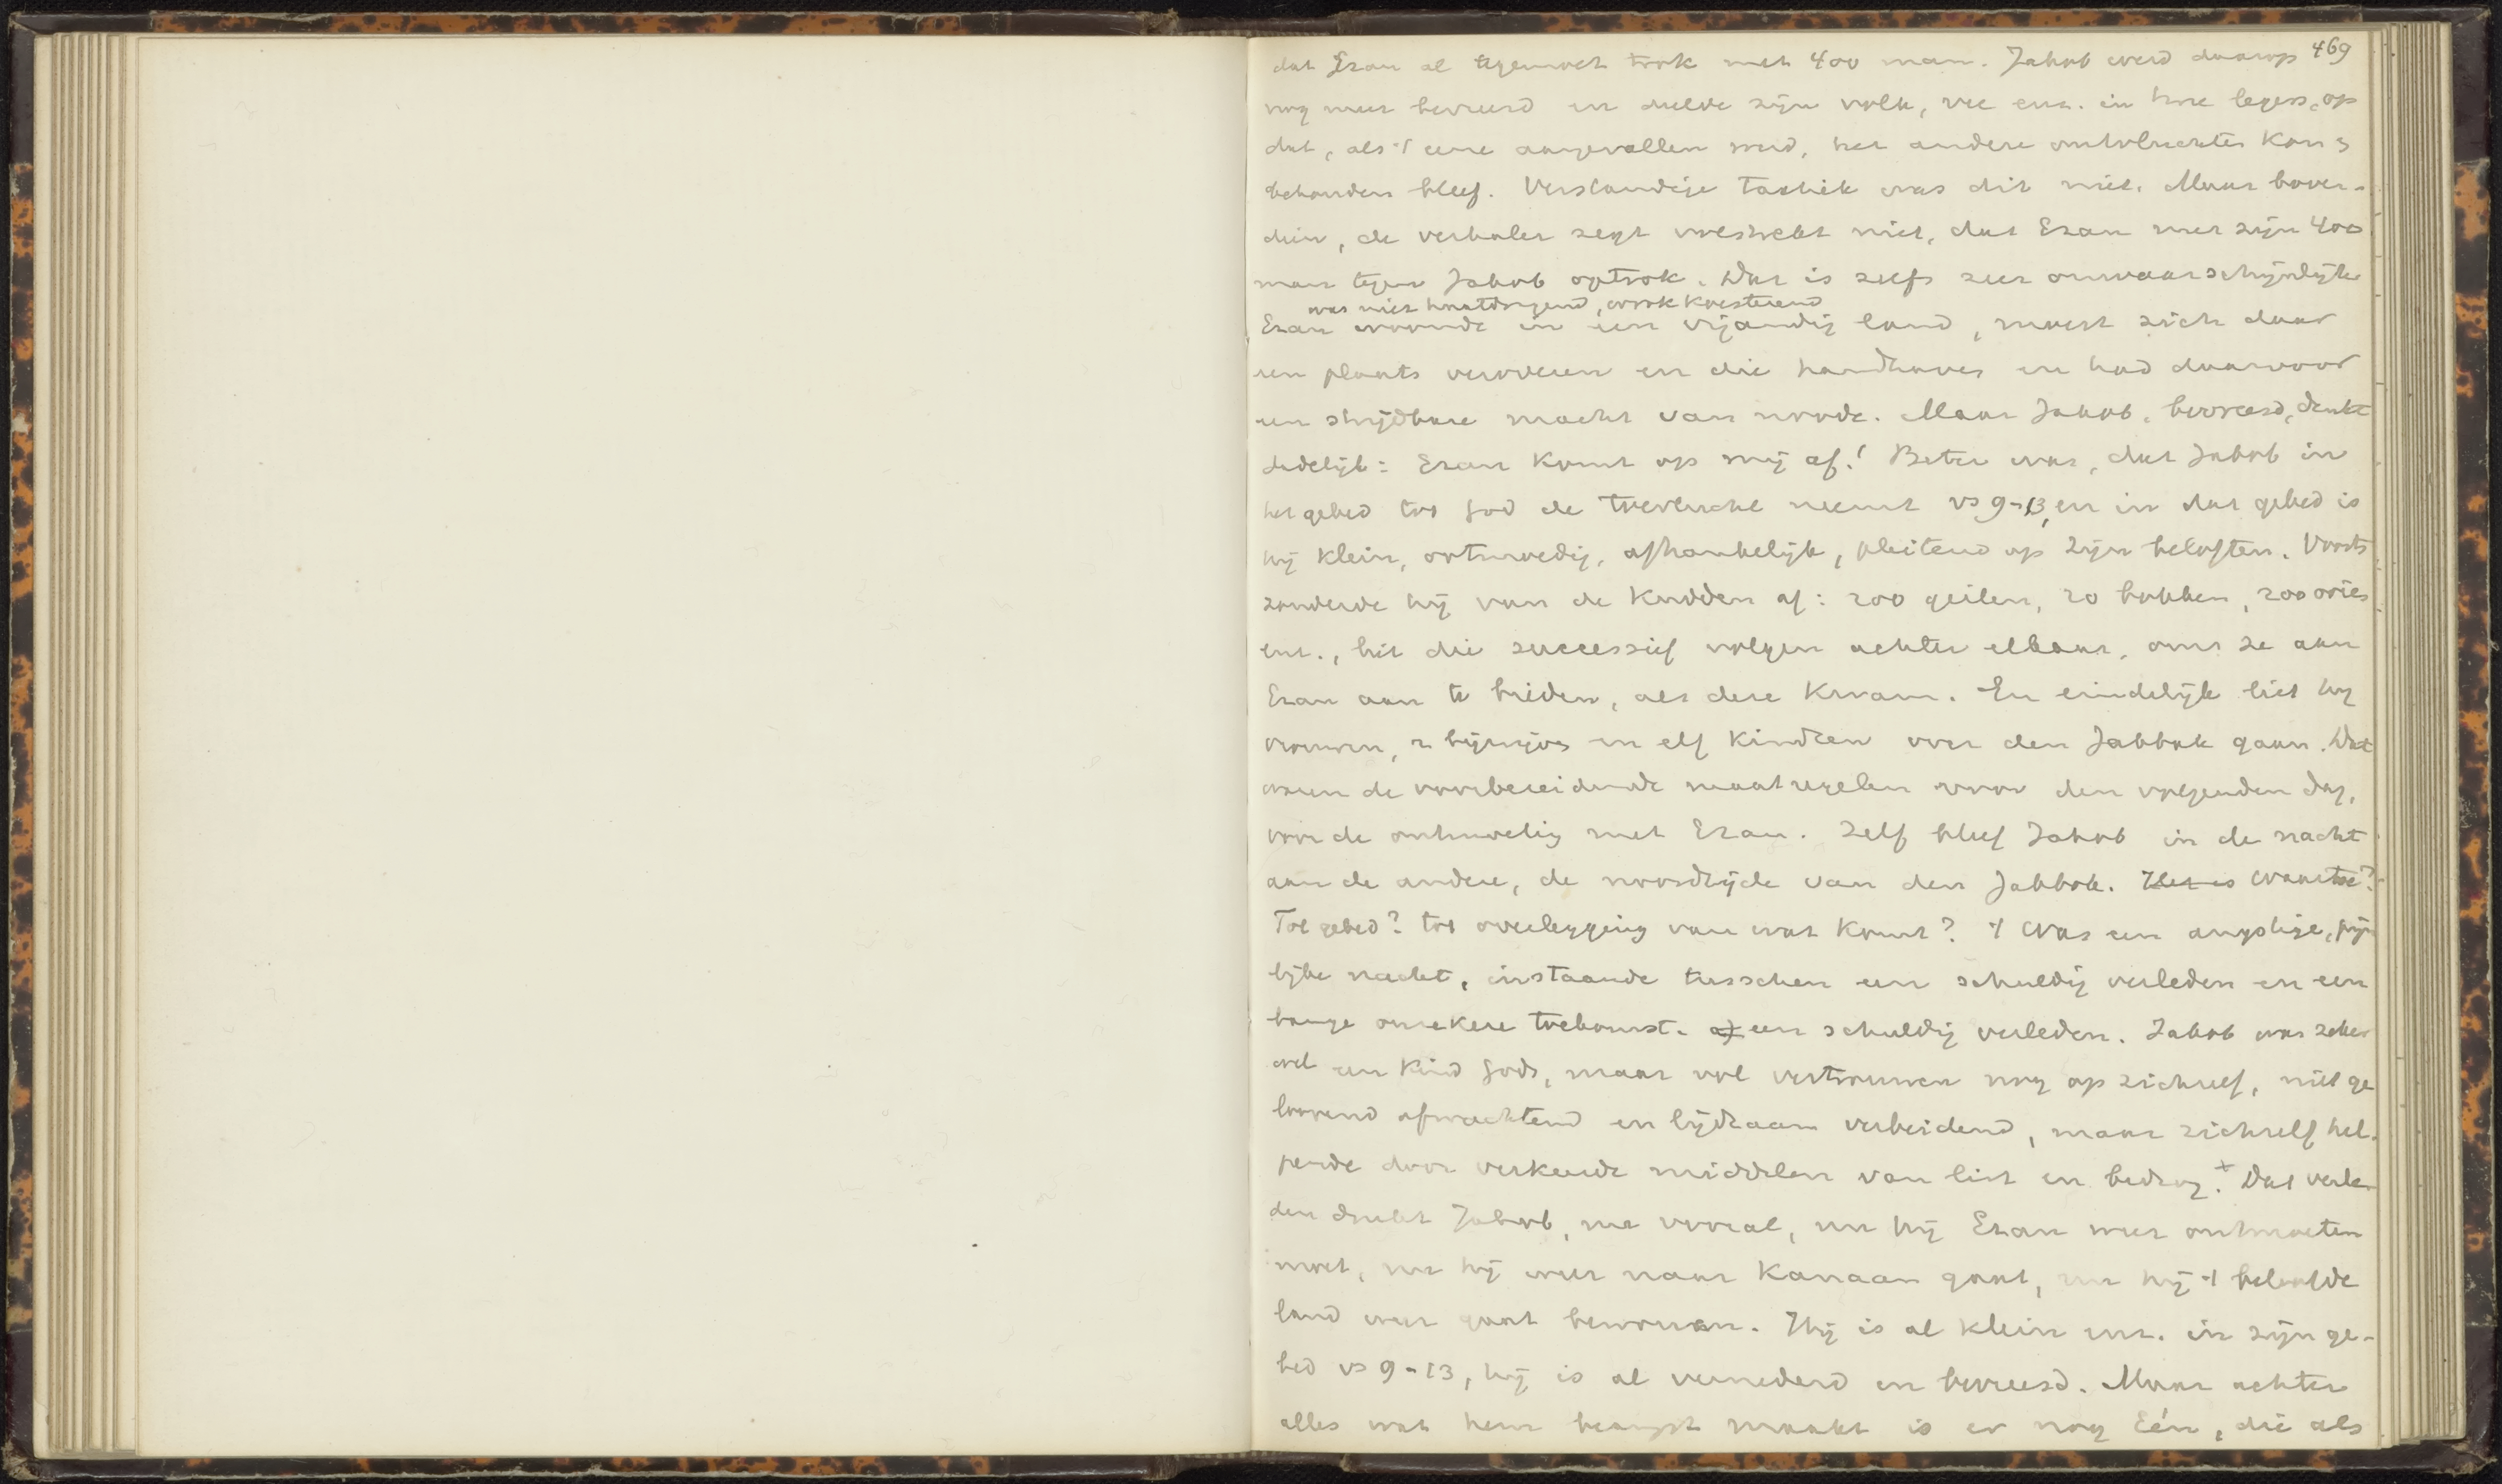 469
dat Ezau al tegemoet trok met 400 man. Jakob werd daarop
nog meer bevreesd en deelde zijn volk, vee enz. in twee legers, op
dat, als 't eene aangevallen werd, het andere ontvluchten kon &
behouden bleef. Verstandige tactiek was dit niet. Maar boven-
dien, de verhaler zegt volstrekt niet, dat Ezau met zijn 400
man tegen Jakob optrok. Dat is zelfs zeer onwaarschijnlijk
was niet haatdragend, wrok koesterend
Ezau woonde in een vijandig land, moest zich daar
een plaats veroveren en die handhaven en had daarvoor
een strijdbare macht van noode. Maar Jakob, bevreesd, denkt
dadelijk: Ezau komt op mij af! Beter was, dat Jakob in
het gebed tot God de toevlucht neemt vs 9-13, en in dat gebed is
hij klein, ootmoedig, afhankelijk, pleitend op Zijn beloften. Voorts
zonderde hij van de kudden af: 200 geiten, 20 bokken, 200 ooien
enz., liet die successief volgen achter elkaar, om ze aan
Ezau aan te bieden, als deze kwam. En eindelijk liet hij
vrouwen, 2 bijwijven en elf kindren over den Jabbok gaan. Dat
waren de voorbereidende maatregelen voor den volgenden dag,
voor de ontmoeting met Ezau. Zelf bleef Jakob in de nacht
aan de andere, de noordzijde van den Jabbok. Het is Waartoe?
Tot gebed? tot overlegging van wat komt? 't Was een angstige, pijn
lijke nacht, instaande tusschen een schuldig verleden en een
bange onzekere toekomst. a) een schuldig verleden. Jakob was zeker
wel een kind Gods, maar vol vertrouwen nog op zichzelf, niet ge
loovend afwachtend en lijdzaam verbeidend, maar zichzelf hel-
pende door verkeerde middelen van list en bedrog.+ Dat verle-
den drukt Jakob, nu vooral, nu hij Ezau weer ontmoeten
moet, nu hij weer naar Kanaan gaat, nu hij 't beloofde
land weer gaat bewonen. Hij is al klein enz. in zijn ge-
bed vs 9-13, hij is al vernederd en bevreesd. Maar achter
alles wat hem beangst maakt is er nog Eén, die als